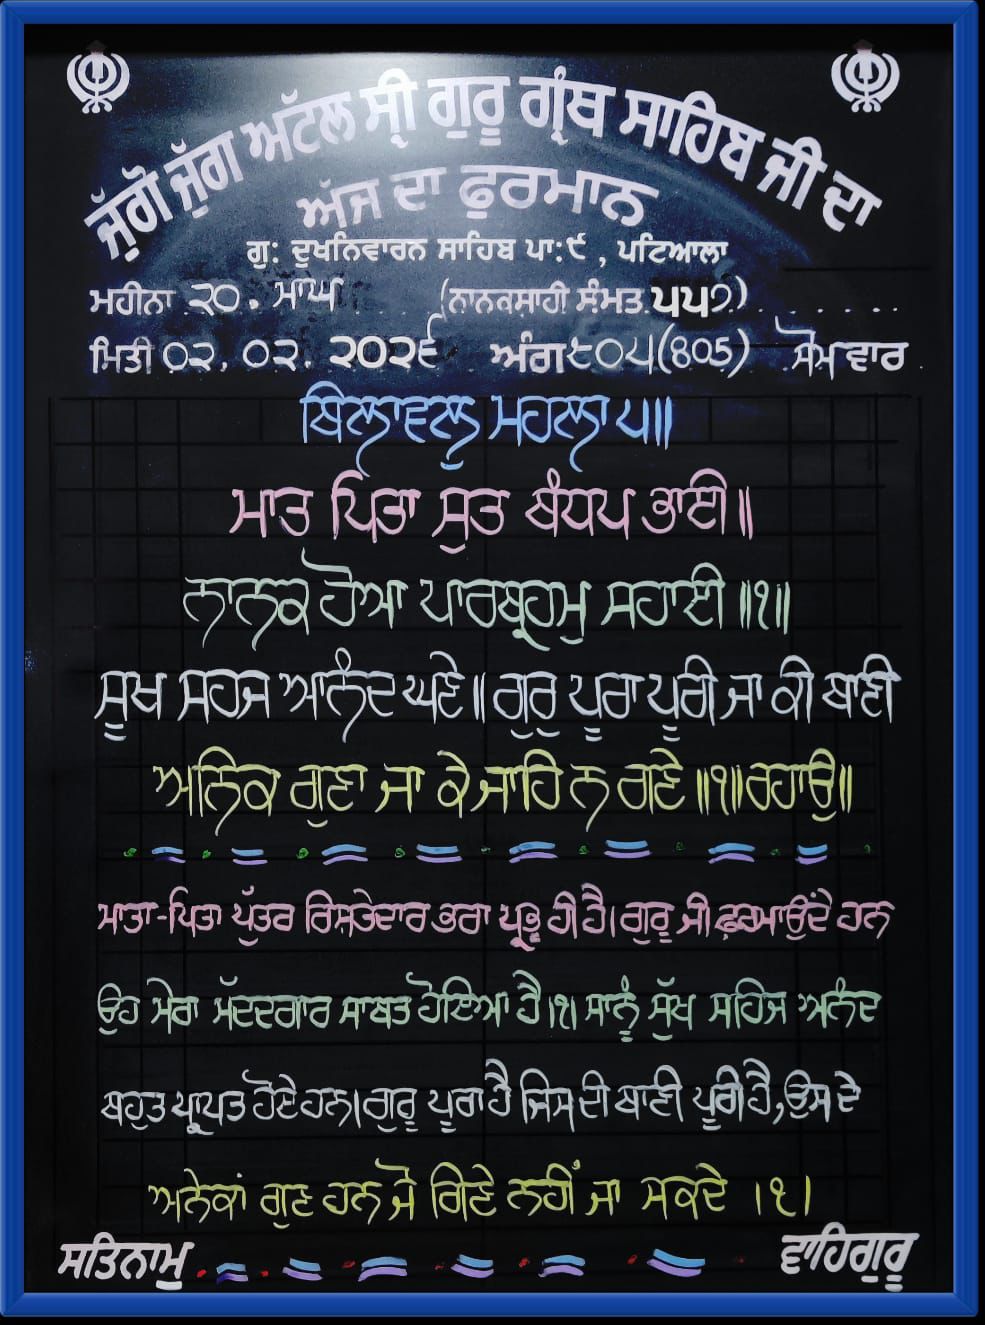 ਜੁੱਗੋ ਜੁੱਗ ਅਟੱਲ ਸ੍ਰੀ ਗੁਰੂ ਗ੍ਰੰਥ ਸਾਹਿਬ ਜੀ ਦਾ
ਅੱਜ ਦਾ ਫੁਰਮਾਨ
ਗੁ: ਦੁਖਨਿਵਾਰਨ ਸਾਹਿਬ ਪਾ:੯, ਪਟਿਆਲਾ
ਮਹੀਨਾ ੨੦. ਮਾਘ (ਨਾਨਕਸਾਹੀ ਸੰਮਤ ੫੫੭)
ਮਿਤੀ ੦੨. ੦੨. ੨੦੨੬ ਅੰਗ ੮੦੫(805) ਸੋਮਵਾਰ
ਬਿਲਾਵਲੁ ਮਹਲਾ ੫॥
ਮਾਤ ਪਿਤਾ ਸੁਤ ਬੰਧਪ ਭਾਈ॥
ਨਾਨਕ ਹੋਆ ਪਾਰਬ੍ਰਹਮੁ ਸਹਾਈ॥੧॥
ਸੂਖ ਸਹਜ ਆਨੰਦ ਘਣੇ॥ ਗੁਰੁ ਪੂਰਾ ਪੂਰੀ ਜਾ ਕੀ ਬਾਣੀ
ਅਨਿਕ ਗੁਣਾ ਜਾ ਕੇ ਜਾਹਿ ਨ ਗਣੇ॥੧॥ਰਹਾਉ॥
ਮਾਤਾ-ਪਿਤਾ ਪੁੱਤਰ ਰਿਸ਼ਤੇਦਾਰ ਭਰਾ ਪ੍ਰਭੂ ਹੀ ਹੈ। ਗੁਰੂ ਜੀ ਫ਼ਰਮਾਉਂਦੇ ਹਨ
ਉਹ ਮੇਰਾ ਮੱਦਦਗਾਰ ਸਾਬਤ ਹੋਇਆ ਹੈ।੧। ਸਾਨੂੰ ਸੁੱਖ ਸਹਿਜ ਅਨੰਦ
ਬਹੁਤ ਪ੍ਰਾਪਤ ਹੋਏ ਹਨ। ਗੁਰੂ ਪੂਰਾ ਹੈ ਜਿਸ ਦੀ ਬਾਣੀ ਪੂਰੀ ਹੈ, ਉਸ ਦੇ
ਅਨੇਕਾਂ ਗੁਣ ਹਨ ਜੋ ਗਿਣੇ ਨਹੀਂ ਜਾ ਸਕਦੇ ।੧।
ਸਤਿਨਾਮੁ ਵਾਹਿਗੁਰੂ